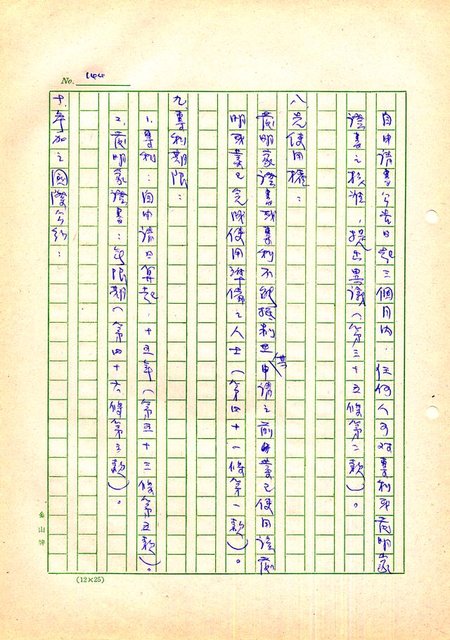 No. 144
自申請書公告日起三個月內,任何人可對專利或發明家
證書之核准,提出異議(第三十五條第二款)。
八、先使用權:
發明家證書或專利不能抵制在其申請之前業已使用該發
明或業已完成使用準備之人士(第四十一條第一款)。
九、專利期限:
1. 專利:自申請日算起,十五年(第五十三條第五款)。
2. 發明家證書:無限期(第四十六條第3款)。
十、參加之國際公約:
金山牌
(12×25)